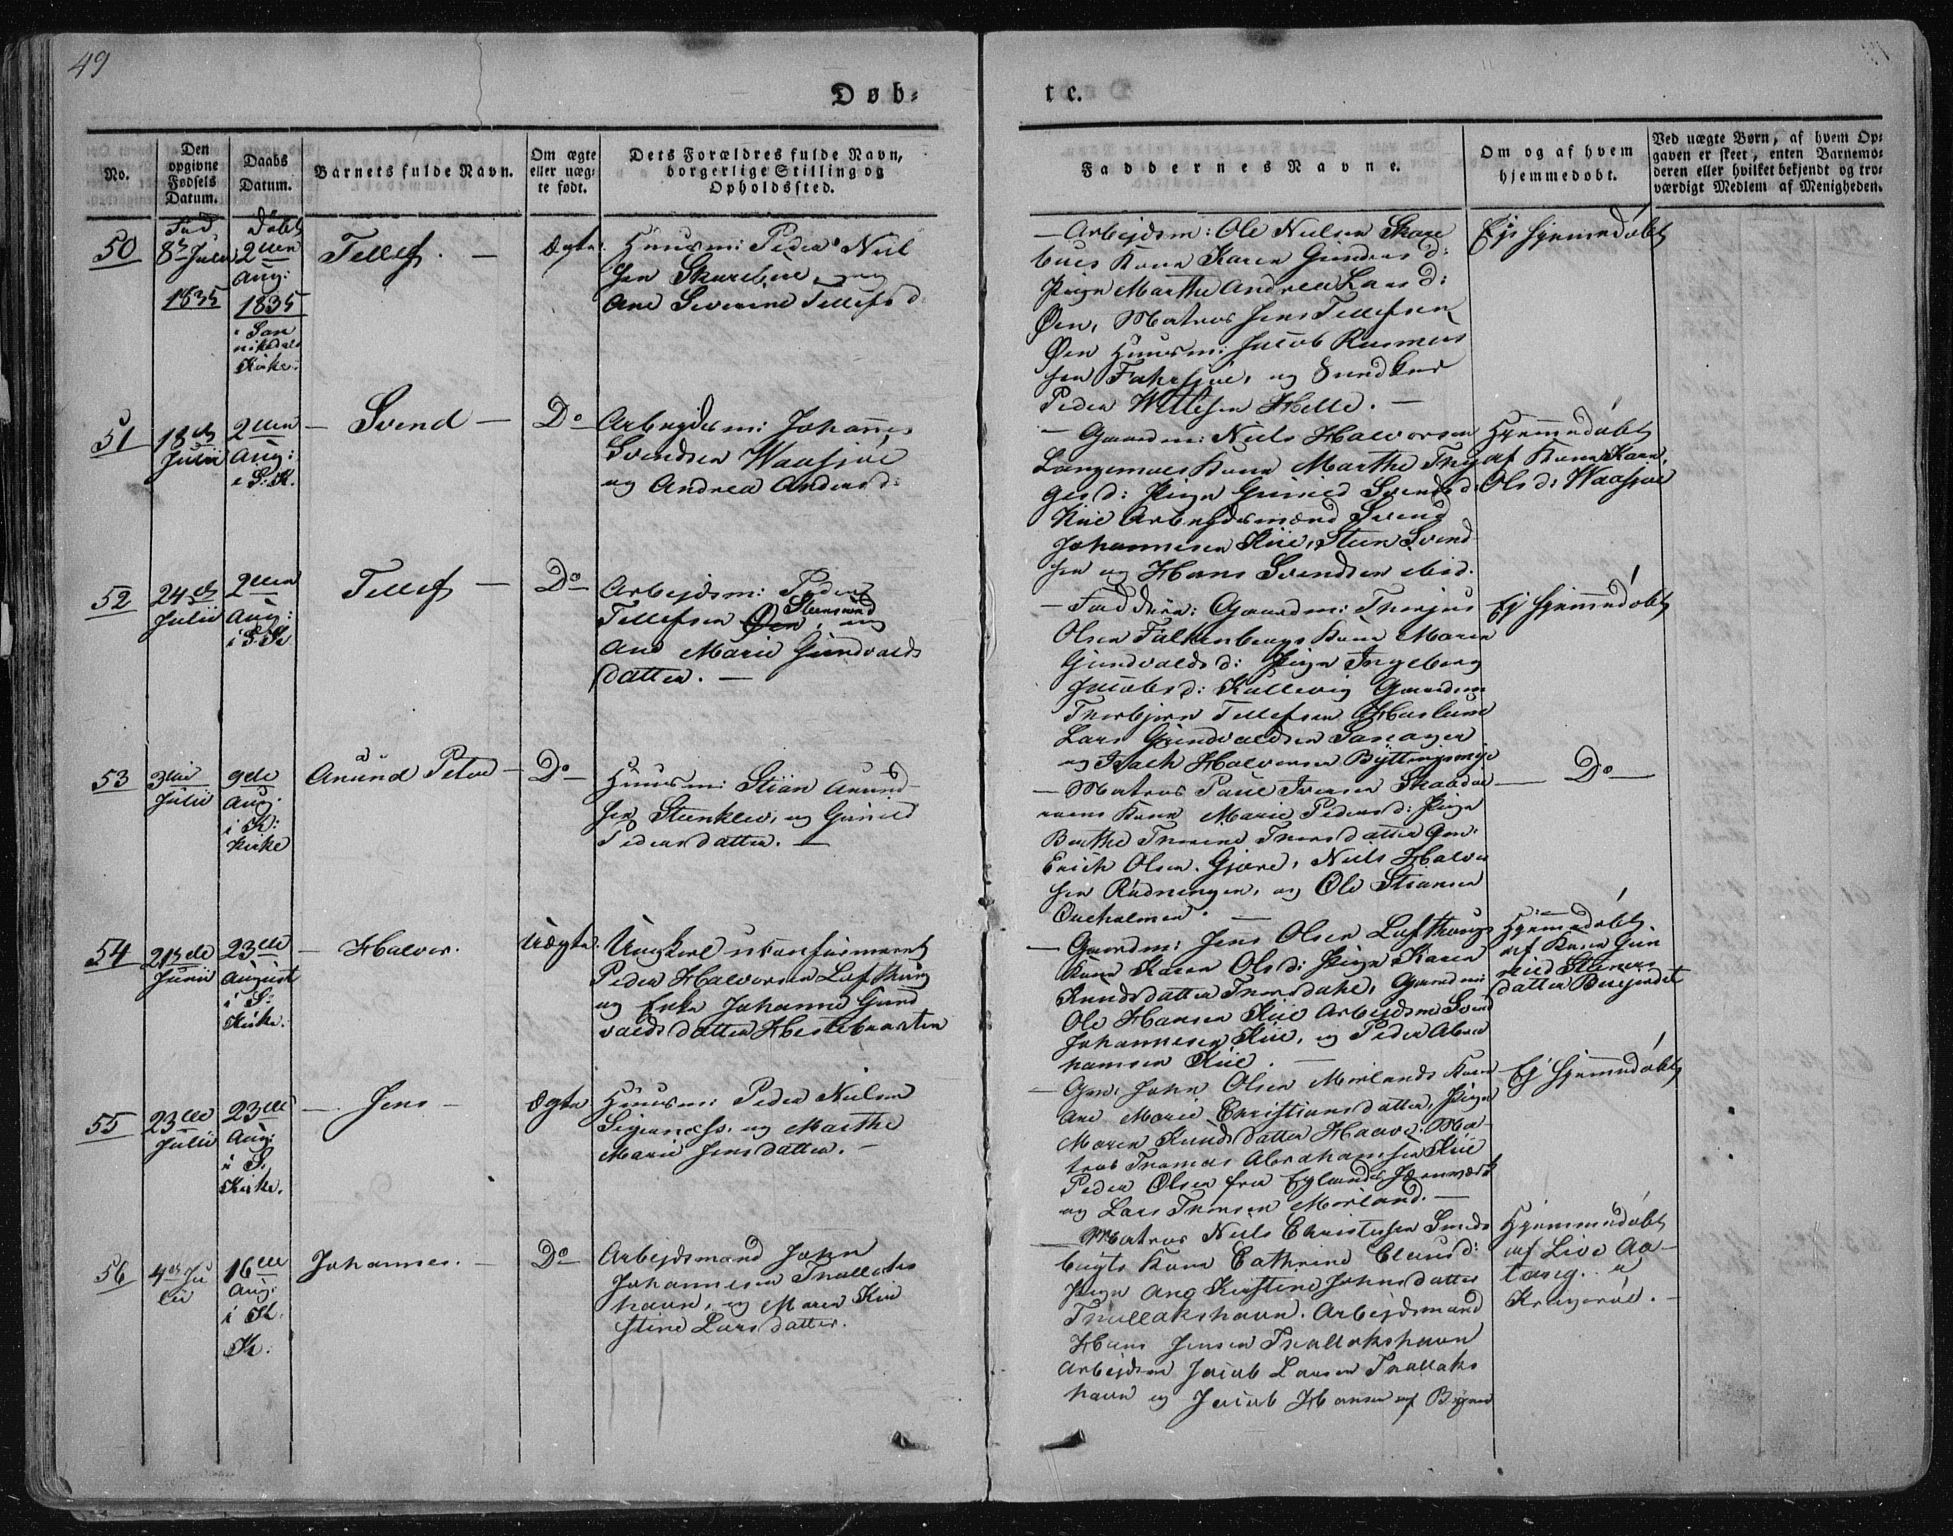 49
Døb-
te.
No.
Den opgivne Fødsels Datum.
Daabs Datum.
Barnets fulde Navn.
Om ægte eller uægte født.
Dets Forældres fulde Navn, borgerlige Stilling og Opholdssted.
Faddernes Navne.
Om og af hvem hjemmedøbt.
Ved uægte Børn, af hvem Opgaven er skeet, enten Barnemoderen eller hvilket bekjendt og troværdigt Medlem af Menigheden.
50
8de Julii
1835
Døbt
2den
Aug:
1835
i San
nikedals
Kirke.
Tellef. —
Ægte.
Huusm: Peder Niel
sen Skarebue, og
Ane Severine Tellefsd:
— Arbejdsm: Ole Nielsen Skare
bues Kone Karen Gunders d:
Pige Marthe Andrea Lars d:
Øen, Matros Jens Tellefsen
Øen Huusm: Jacob Rasmus
sen
Peder Helle. —
Ej hjemmedøbt
51
18de
Julii
2den
Aug:
i S: K.
— Svend —
Do
Arbeydsm: Johannes
Svendsen Waasjøe
og Andrea Anders d:
— Gaardm: Niels Halvorsen
Langemyrs Kone Marthe
d: Pige Gunild Svends d:
Kiie Arbeydsmænd Svend
Johannesen Kiie, Steen Svend
sen og Hans Svendsen ibid.
Hjemmedøbt
af Kone Karen
Ols d: Waasjøe
52
24de
Julii
2den
Aug:
i S. K.
Tellef —
Do
Arbejdsm: Peder
Steensund
Tellefsen Øen, og
Ane Marie Gundvalds
datter. —
— Faddere: Gaardm: Thorjus
Olsen Falkenbergs Kone Maren
Gundvalds d: Pige Ingeborg
Jacobs d: Kallevig Gaardm:
Thorbjørn Tellefsen Haslum
Lars Gundvaldsen
og Isach Halvorsen
Ej hjemmedøbt
53
Julii
9de
Aug.
i K:
Kirke
Anund Peter —
Do
Huusm: Stian Anund
sen Steenklev, og Gunild
Pedersdatter. —
— Matros Poul Iversen
Kone Marie Peders d: Pige
Berthe Thorine Thorsdatter
Erich Olsen Gjære, Niels Halvor
sen Rødningen, og Ole Stiansen
— Do —
54
21de
Junii
23de
August
i S:
Kirke.
— Halvor.
Uægte.
Ungkarl ukonfirmeret
Peder Halvorsen Lofthuug
og Enke Johanne Gund
valdsdatter Hestebaasten
— Gaardm: Jens Olsen Lofthuugs
Kone Karen Ols d: Pige Karen
Knudsdatter Thorsdahl, Gaardm:
Ole Hansen Kiie Arbejdsm Svend
Johannesen Kiie, og Peder Abra
hamsen Kiie. —
Hjemmedøbt
af Kone Gun
nild Steners
datter
55
23de
Julii
23de
Aug:
i S.
Kirke.
— Jens —
Ægte
Huusm: Peder Nielsen
og Marthe
Marie Jensdatter. —
— Gm: John Olsen Mørlands Kone
Ane Marie Christiansdatter, Pige
Maren Knudsdatter Haave. Ma-
tros Thomas Abrahamsen Kiie
Peder Olsen fra Eglands Jernværk
og Lars Thorsen Mørland. —
— Ej hjemmedøbt
56
4de Ju
lii
16de
Aug:
i K.
K.
Johannes. —
Do
Arbejdsmand John
Johannesen Trollaks
havn, og Maren Kir
stine Larsdatter.
— Matros Niels Christensen Smeds
bugts Kone Cathrine Claus d:
Pige Ane Kirstine Johnsdatter
Trollakshavn. Arbejdsmand
Hans Jensen Trollakshavn
Arbejdsm Jacob Larsen Trollaks
havn og Jacob Hansen af Byen
Hjemmedøbt
af Live Aa-
Kragerøe. —